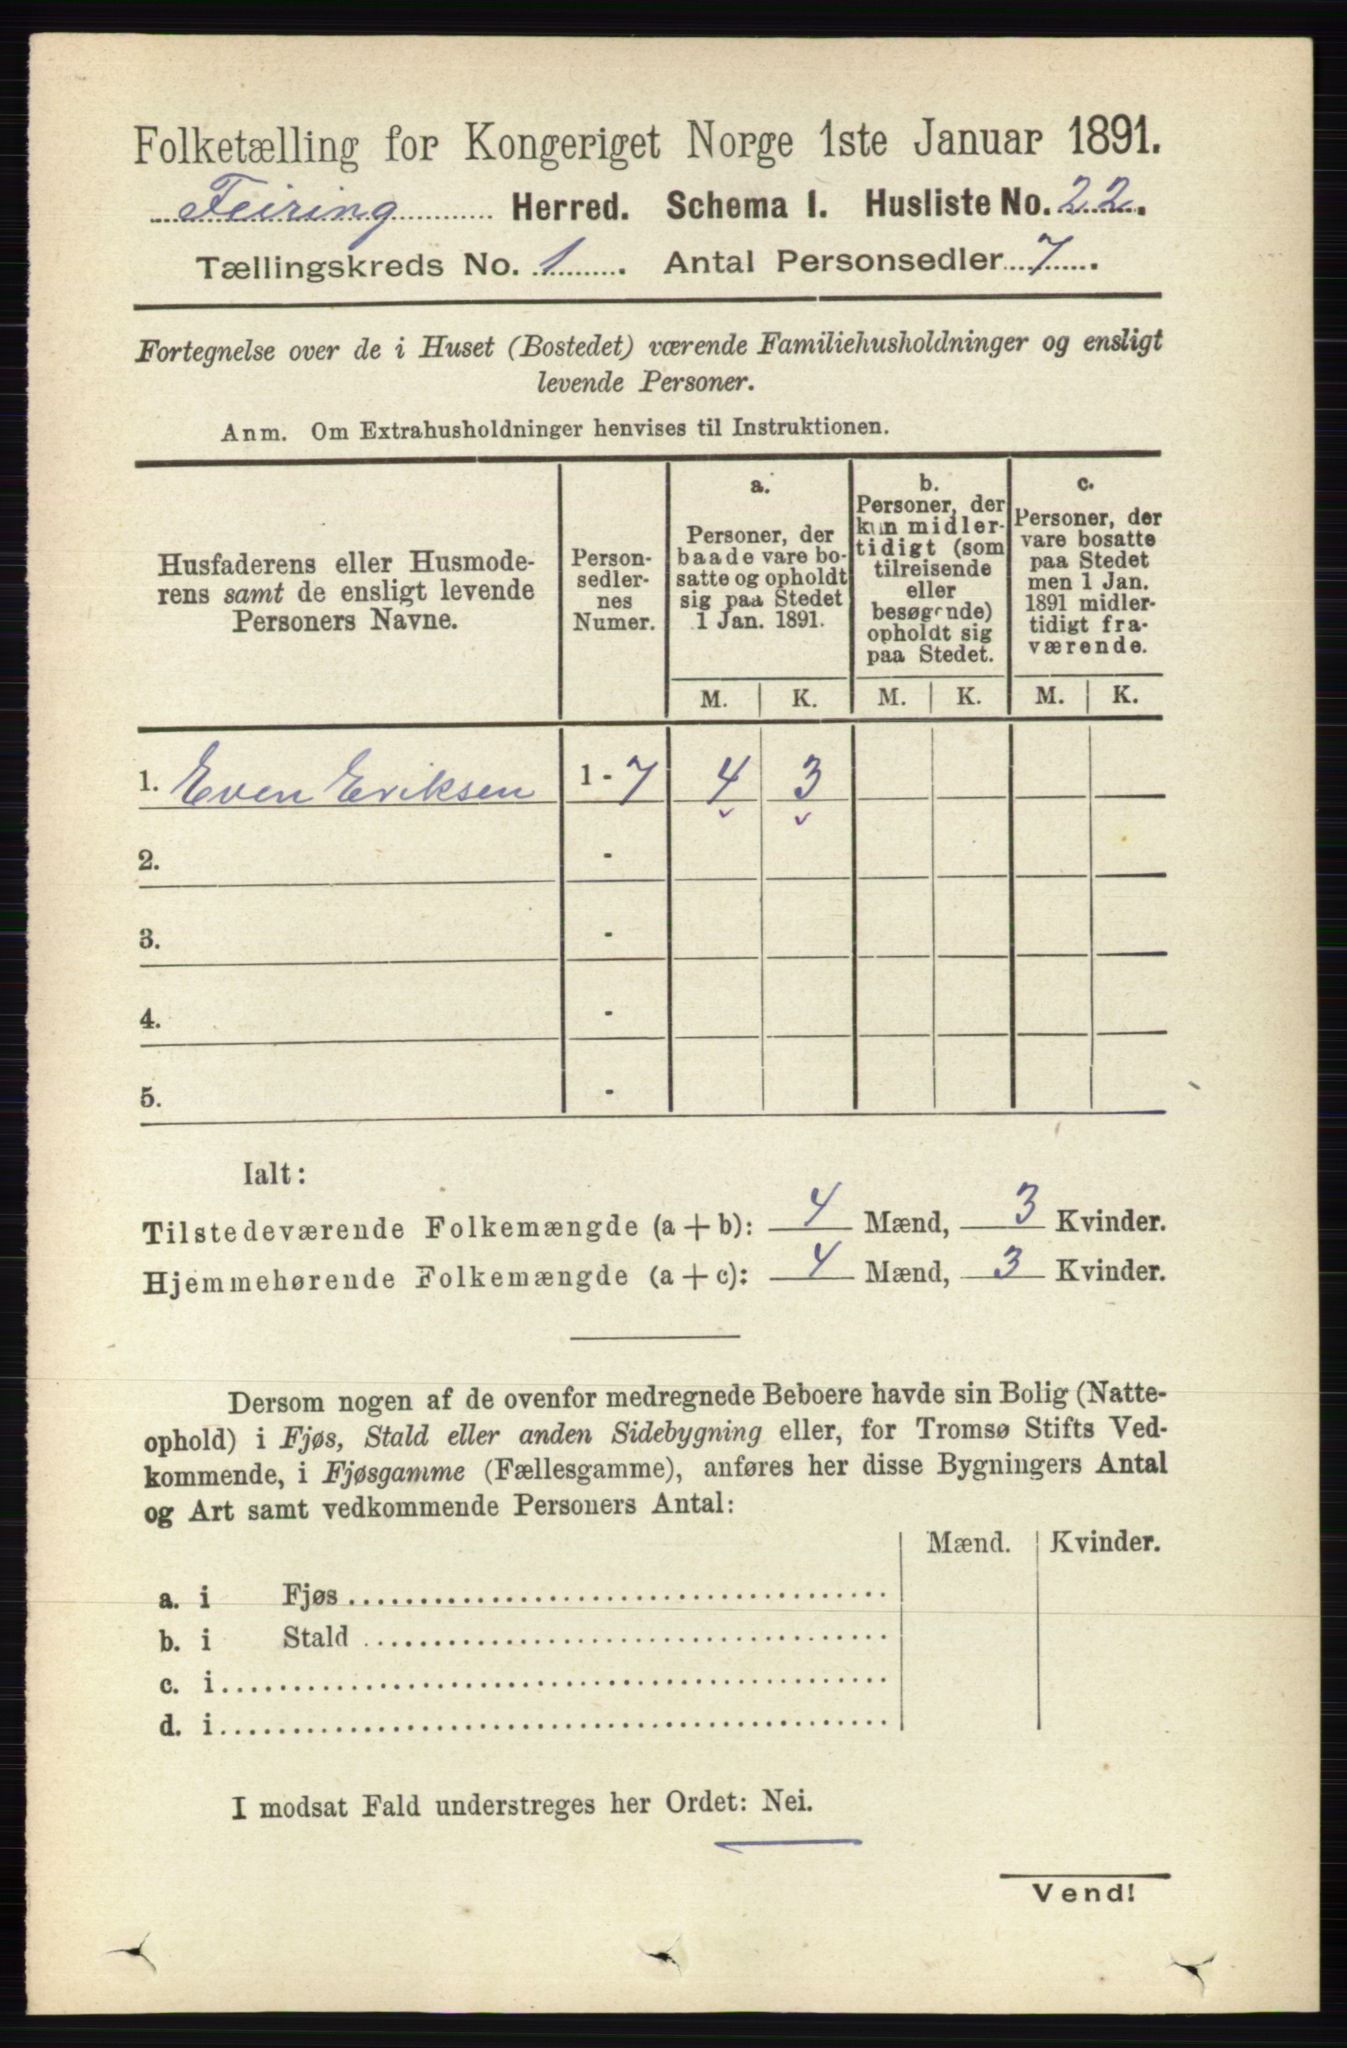 Folketælling for Kongeriget Norge 1ste Januar 1891.
Feiring Herred. Schema 1. Husliste No. 22.
Tællingskreds No. 1. Antal Personsedler 7.
Fortegnelse over de i Huset (Bostedet) værende Familiehusholdninger og ensligt
levende Personer.
Anm. Om Extrahusholdninger henvises til Instruktionen.
Husfaderens eller Husmode-
rens samt de ensligt levende
Personers Navne.
Person-
sedler-
nes
Numer.
a.
Personer, der
baade vare bo-
satte og opholdt
sig paa Stedet
1 Jan. 1891.
b.
Personer, der
kun midler-
tidigt (som
tilreisende
eller
besøgende)
opholdt sig
paa Stedet.
c.
Personer, der
vare bosatte
paa Stedet
men 1 Jan.
1891 midler-
tidigt fra-
værende.
M. K. M. K. M. K.
1. Even Eriksen 1 - 7 4 3
2. -
3. -
4. -
5. -
Ialt:
Tilstedeværende Folkemængde (a + b): 4 Mænd, 3 Kvinder.
Hjemmehørende Folkemængde (a + c): 4 Mænd, 3 Kvinder.
Dersom nogen af de ovenfor medregnede Beboere havde sin Bolig (Natte-
ophold) i Fjøs, Stald eller anden Sidebygning eller, for Tromsø Stifts Ved-
kommende, i Fjøsgamme (Fællesgamme), anføres her disse Bygningers Antal
og Art samt vedkommende Personers Antal:
Mænd. Kvinder.
a. i Fjøs
b. i Stald
c. i
d. i
I modsat Fald understreges her Ordet: Nei.
Vend!